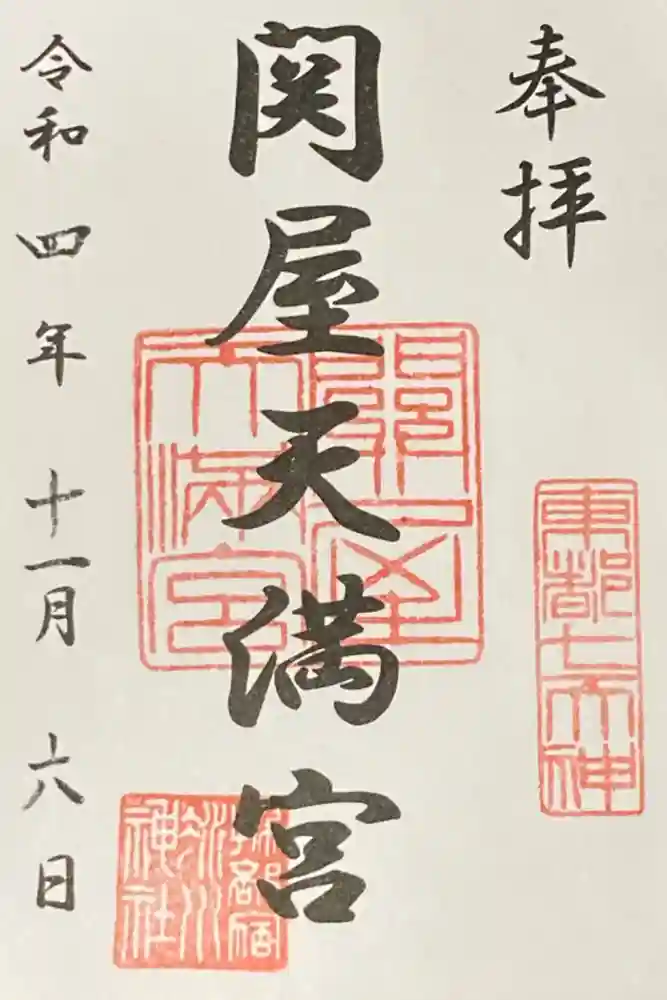 奉拝
東都七天神
関屋天満宮
関屋天満宮
氷川神社
令和四年 十一月 六日